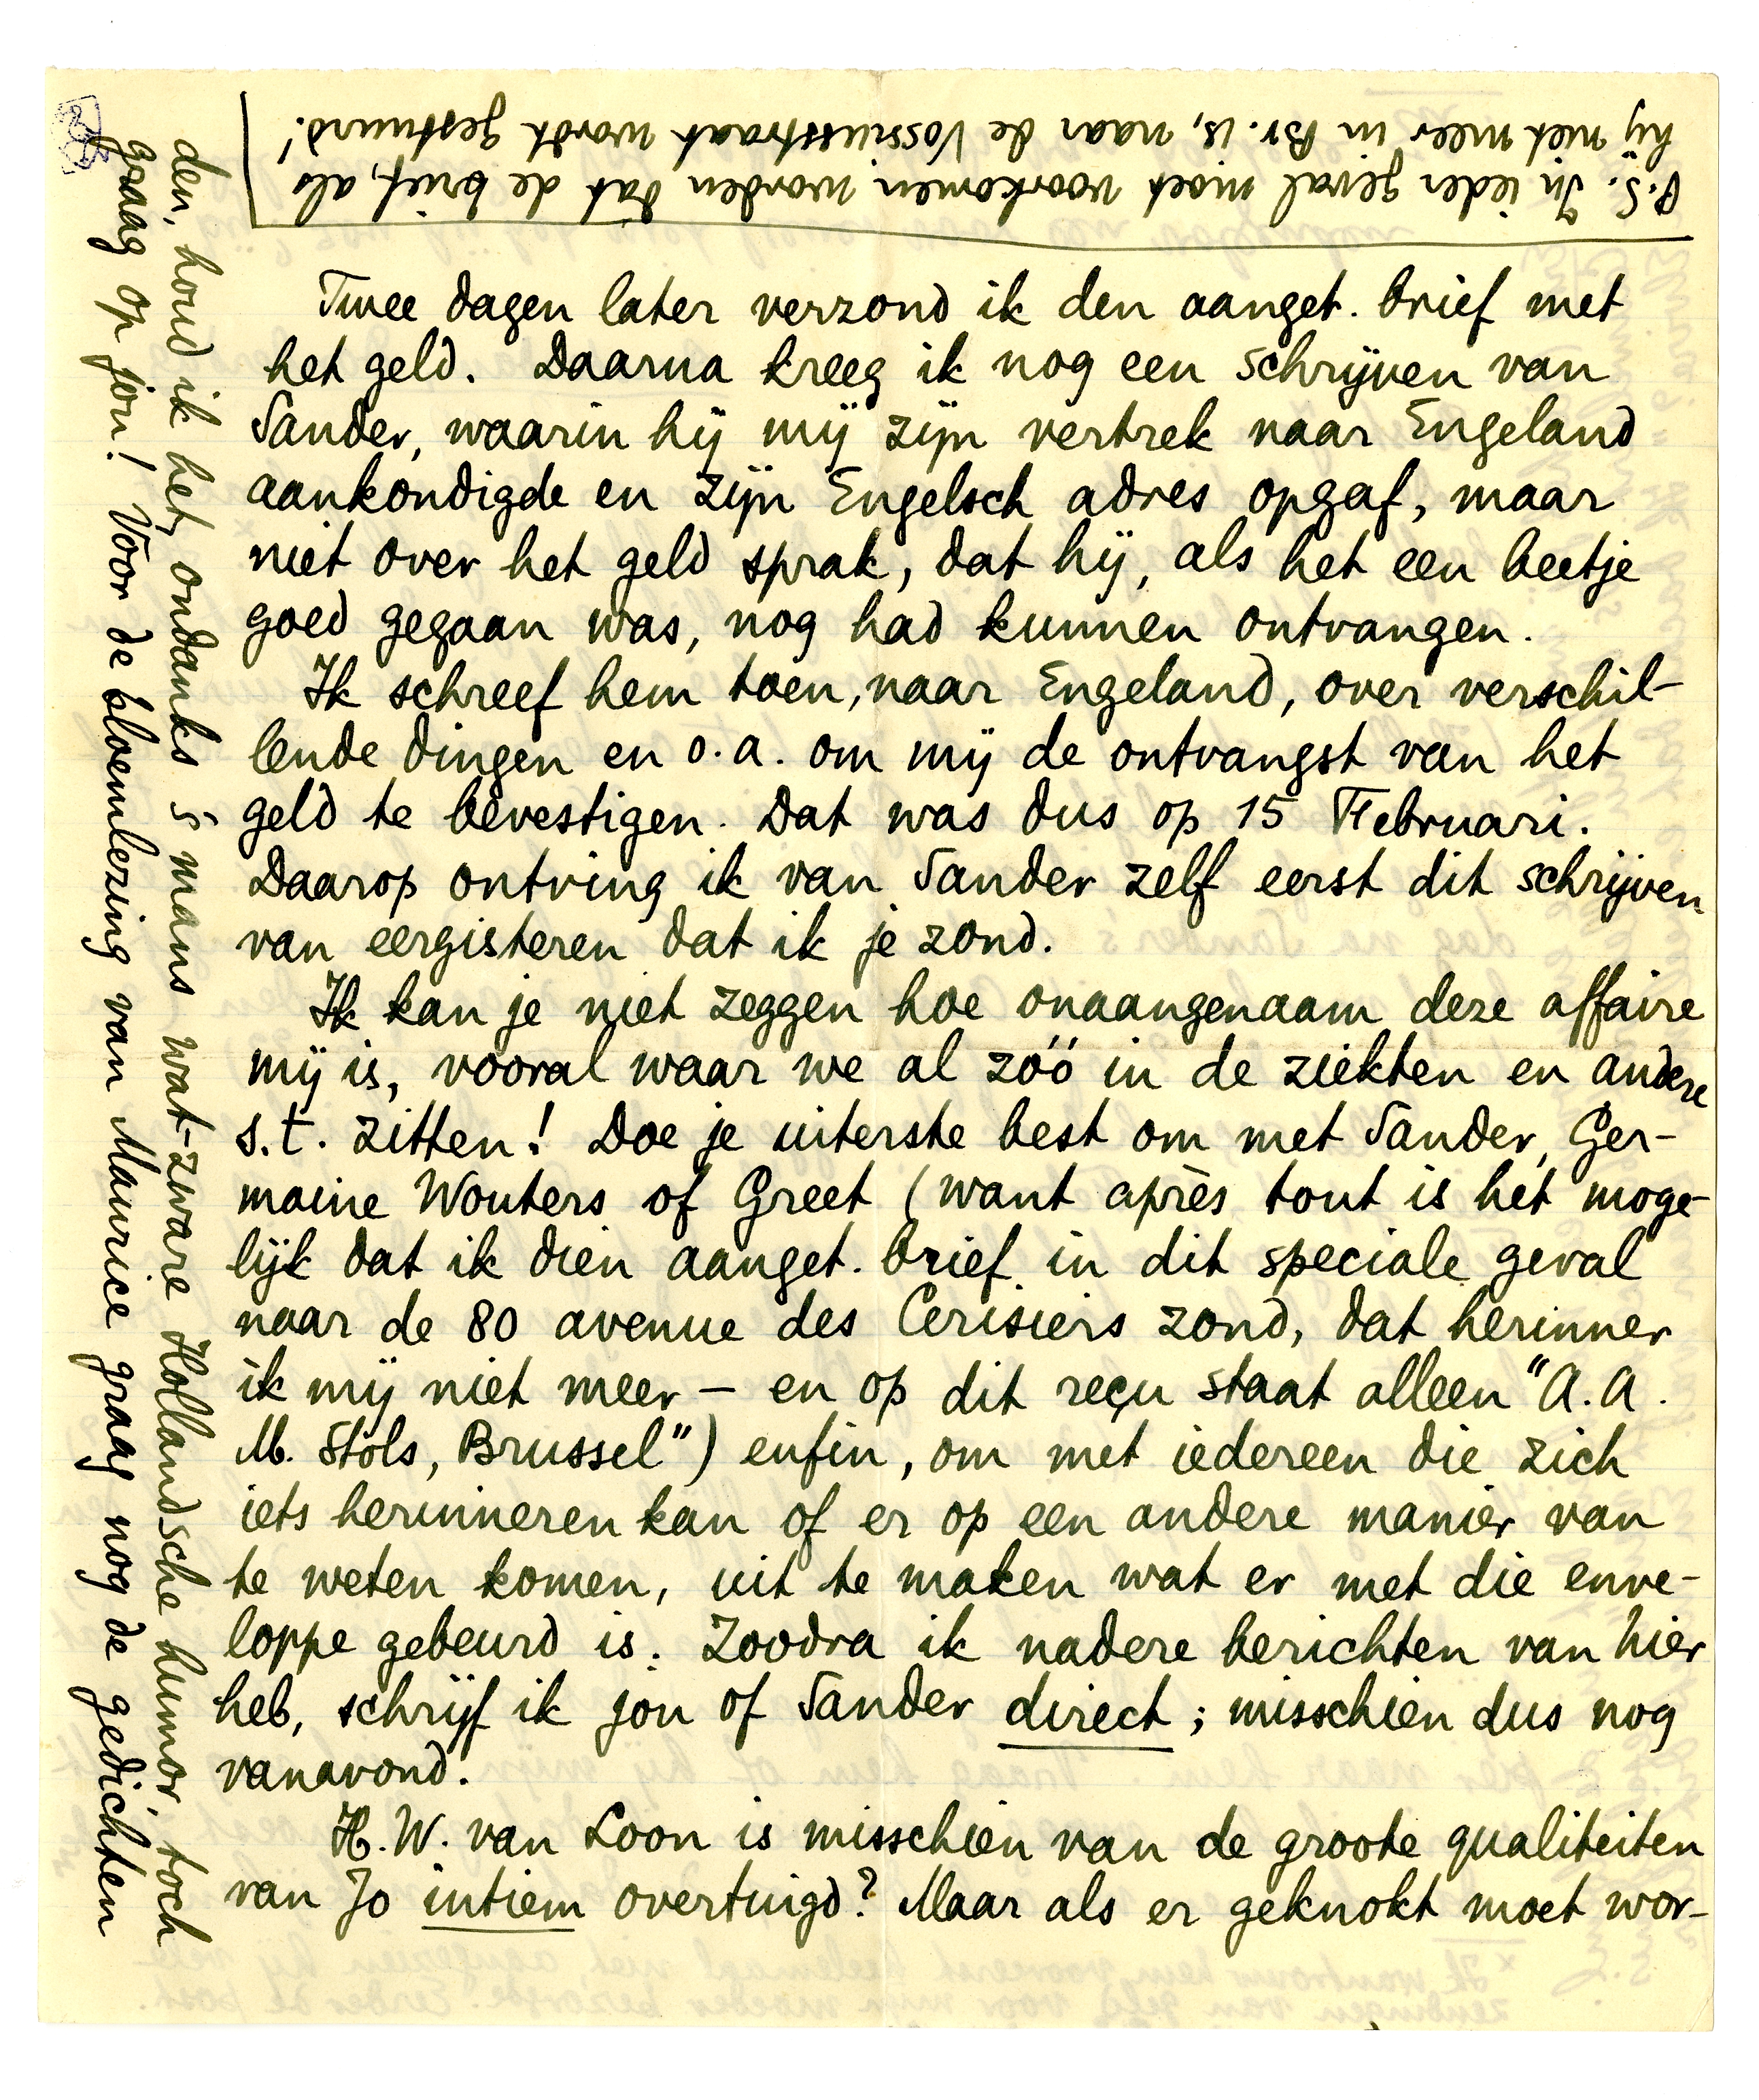 Twee dagen later verzond ik den aanget. brief met
het geld. Daarna kreeg ik nog een schrijven van
Sander, waarin hij mij zijn vertrek naar Engeland
aankondigde en zijn Engelsch adres opgaf, maar
niet over het geld sprak, dat hij, als het een beetje
goed gegaan was, nog had kunnen ontvangen.
Ik schreef hem toen, naar Engeland, over verschil-
lende dingen en o.a. om mij de ontvangst van het
geld te bevestigen. Dat was dus op 15 Februari.
Daarop ontving ik van Sander zelf eerst dit schrijven
van eergisteren dat ik je zond.
Ik kan je niet zeggen hoe onaangenaam deze affaire
mij is, vooral waar we al zóó in de ziekten en andere
s.t. zitten! Doe je uiterste best om met Sander, Ger-
maine Wouters of Greet (want après tout is het moge-
lijk dat ik dien aanget. brief in dit speciale geval
naar de 80 avenue des Cerisiers zond, dat herinner
ik mij niet meer — en op dit reçu staat alleen "A.A.
M. Stols, Brussel") enfin, om met iedereen die zich
iets herinneren kan of er op een andere manier van
te weten komen, uit te maken wat er met die enve-
loppe gebeurd is. Zoodra ik nadere berichten van hier
heb, schrijf ik jou of Sander direct; misschien dus nog
vanavond.
H.W. van Loon is misschien van de groote qualiteiten
van Jo intiem overtuigd? Maar als er geknokt moet wor-
den, houd ik het, ondanks 's mans wat-zware Hollandsche humor, toch
graag op jou! Voor de bloemlezing van Maurice graag nog de gedichten
P.S. In ieder geval moet voorkomen worden dat de brief, als
hij niet meer in Br. is, naar de Vossiusstraat wordt gestuurd!